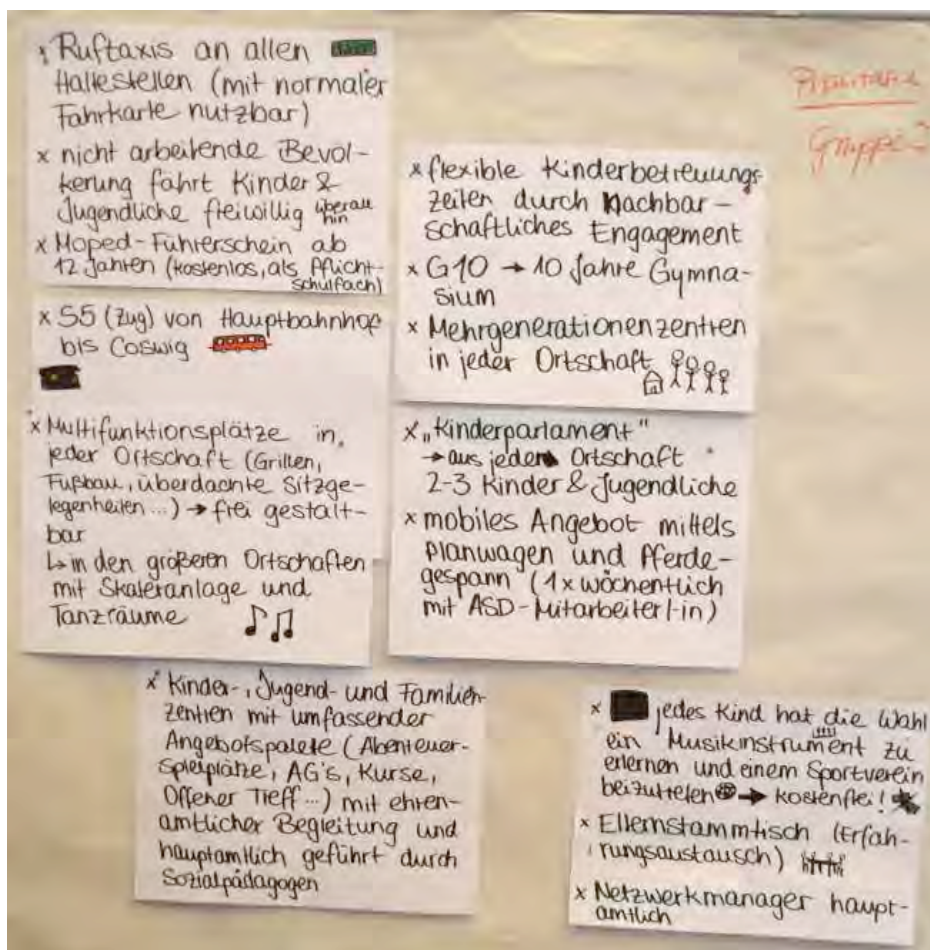 x Ruftaxis an allen
Haltestellen (mit normaler
Fahrkarte nutzbar)
x nicht arbeitende Bevöl-
kerung fährt Kinder &
Jugendliche freiwillig überall
hin
x Moped-Führerschein ab
12 Jahren (kostenlos, als Pflicht-
schulfach)
x S5 (Zug) von Hauptbahnhof
bis Coswig
x Multifunktionsplätze in
jeder Ortschaft (Grillen,
Fußball, überdachte Sitzge-
legenheiten ...) → frei gestalt-
bar
↳ in den größeren Ortschaften
mit Skateranlage und
Tanzräume
x flexible Kinderbetreuungs-
zeiten durch Nachbar-
schaftliches Engagement
x G10 → 10 Jahre Gymna-
sium
x Mehrgenerationenzentren
in jeder Ortschaft
x „Kinderparlament"
→ aus jeder Ortschaft
2-3 Kinder & Jugendliche
x mobiles Angebot mittels
Planwagen und Pferde-
gespann (1x wöchentlich
mit ASD-Mitarbeiter/-in)
x Kinder-, Jugend- und Familien-
zentren mit umfassender
Angebotspalete (Abenteuer-
Spielplätze, AG's, Kurse,
Offener Treff ...) mit ehren-
amtlicher Begleitung und
hauptamtlich geführt durch
Sozialpädagogen
x jedes Kind hat die Wahl
ein Musikinstrument zu
erlernen und einem Sportverein
beizutreten → kostenfrei!
x Elternstammtisch (Erfah-
rungsaustausch)
x Netzwerkmanager haupt-
amtlich
Gruppe